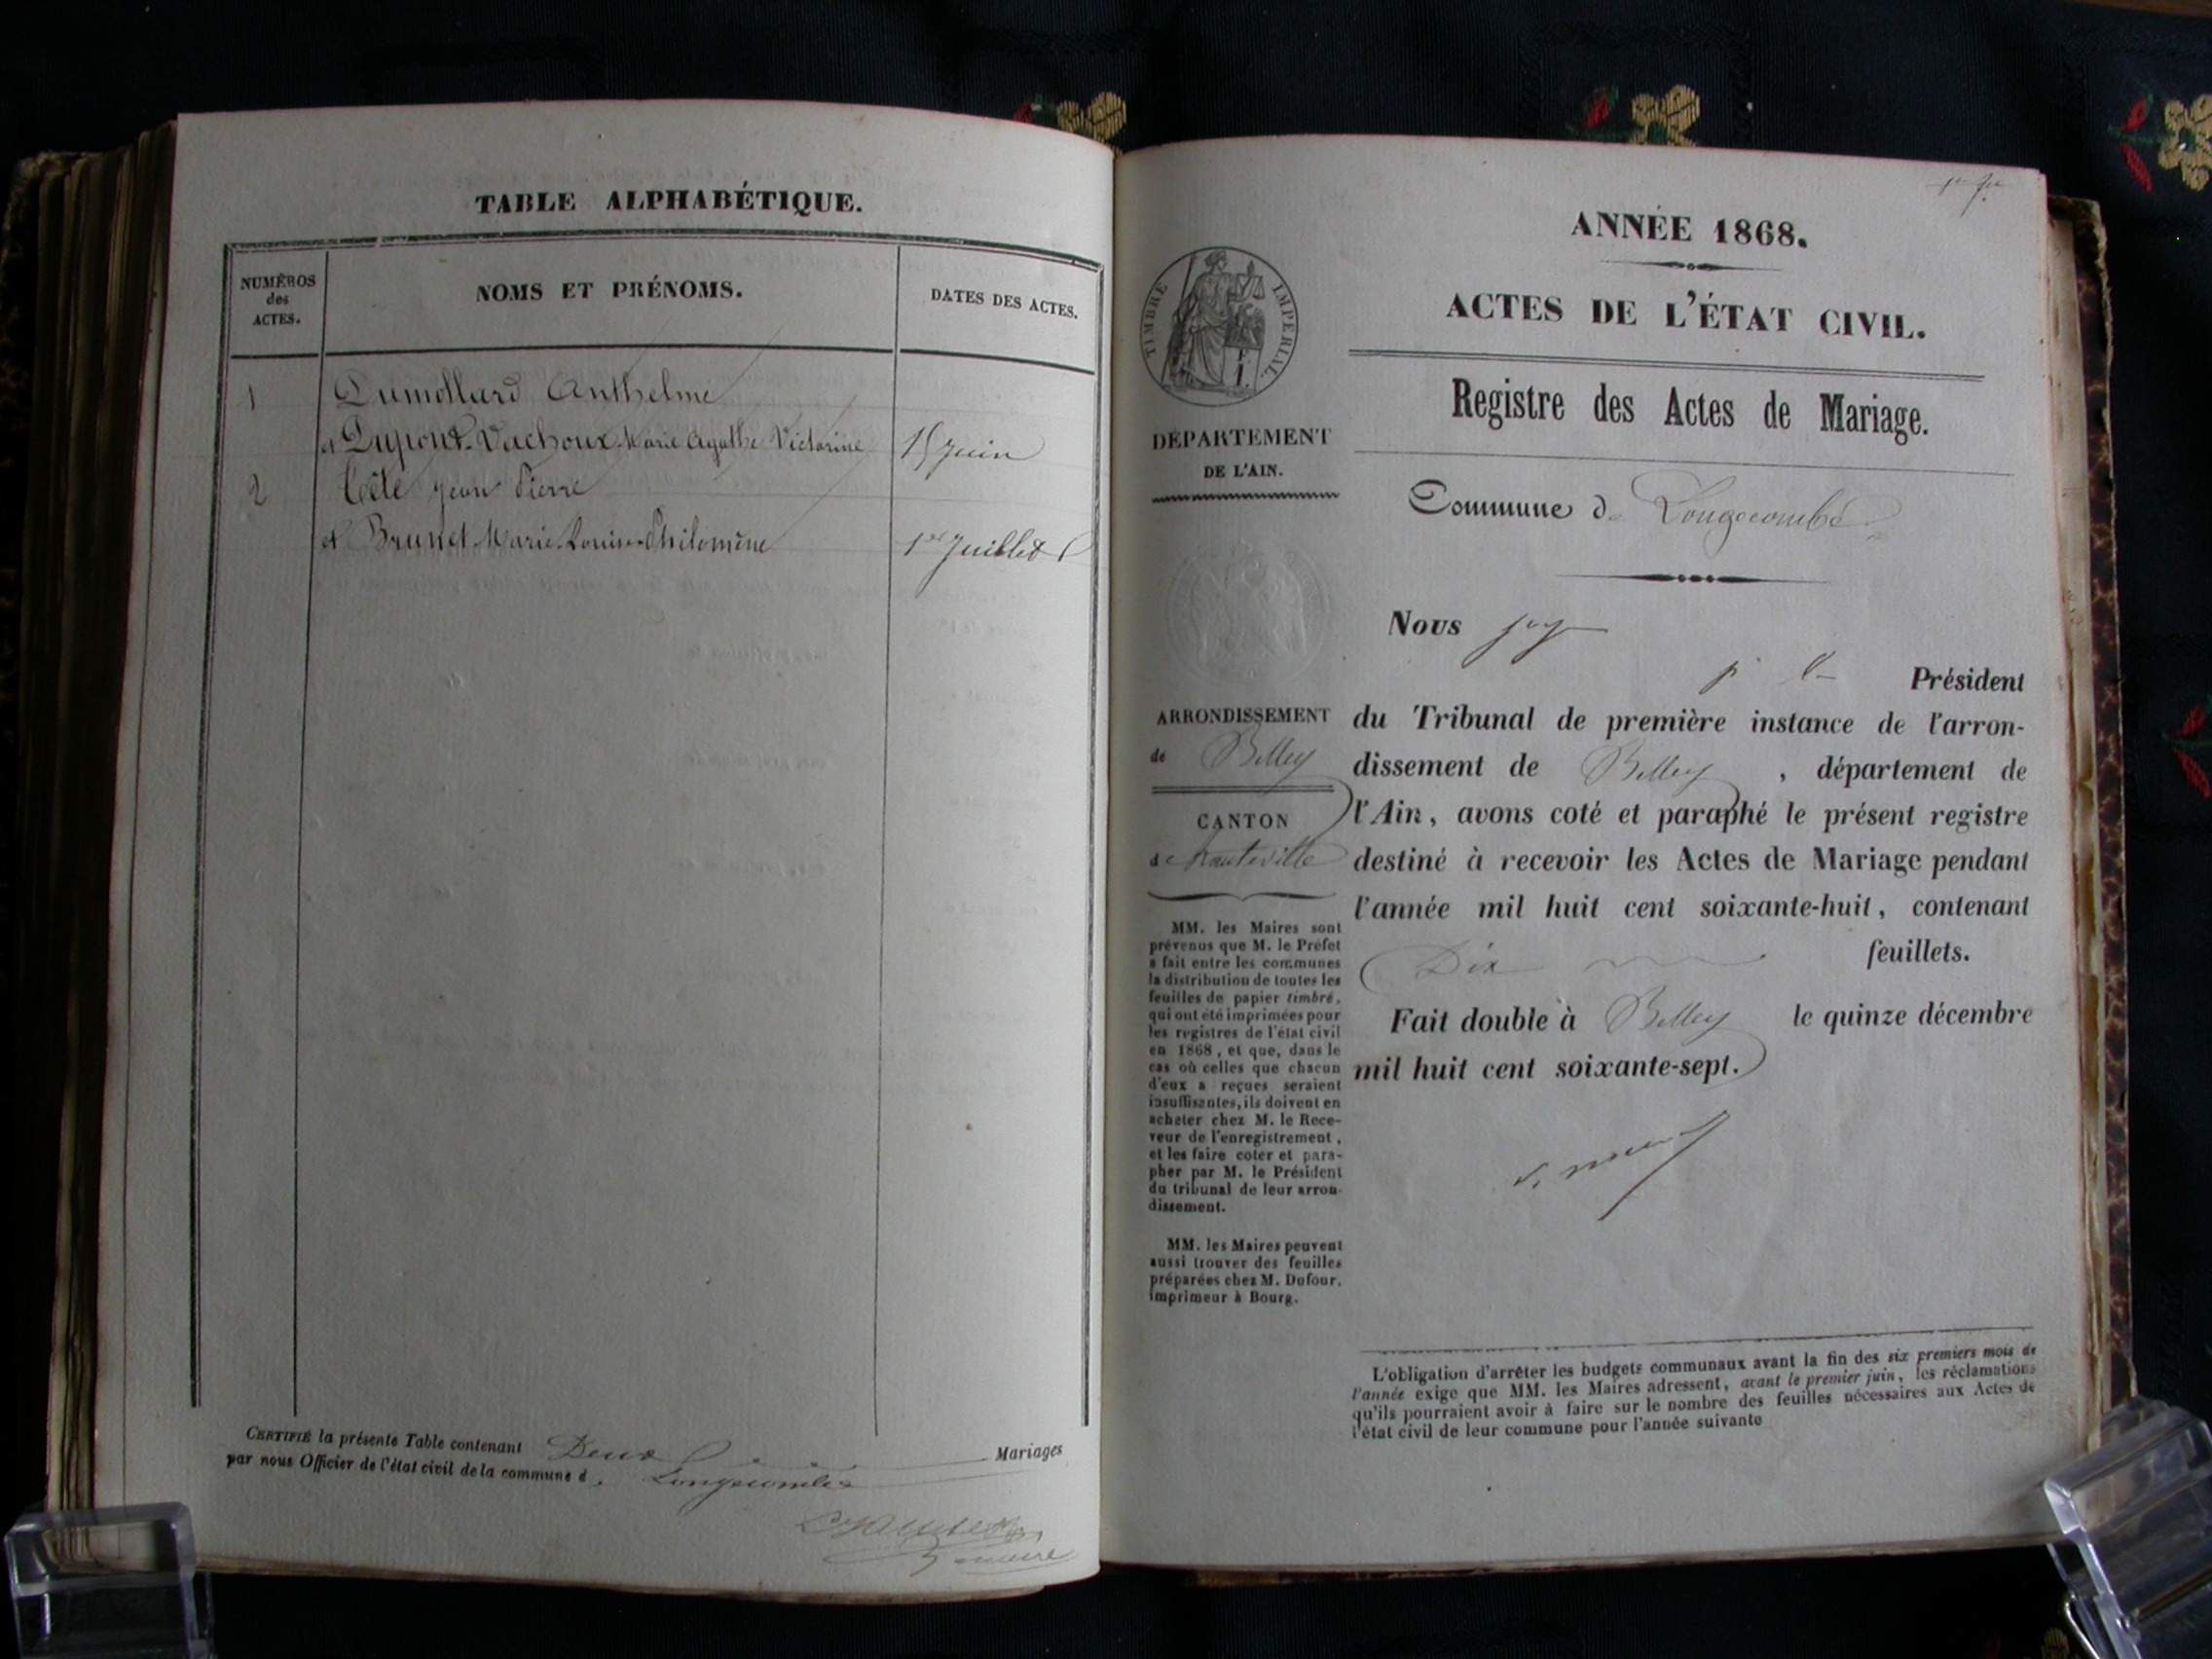 TABLE ALPHABÉTIQUE.
NUMÉROS
des
ACTES.
NOMS ET PRÉNOMS.
DATES DES ACTES.
1 Dumollard Anthelme
et Dupont-Vachoux Marie Agathe Victorine 15 Juin
2 Cête Jean Pierre
et Brunet Marie Louise Philomène 1er Juillet
CERTIFIÉ la présente Table contenant Deux Mariages
par nous Officier de l'état civil de la commune d. Longecombe
maire
1er fet
ANNÉE 1868.
ACTES DE L'ÉTAT CIVIL.
Registre des Actes de Mariage.
Commune de Longecombe
TIMBRE IMPERIAL.
DÉPARTEMENT
DE L'AIN.
ARRONDISSEMENT
de Belley
CANTON
de Hauteville
MM. les Maires sont
prévenus que M. le Préfet
a fait entre les communes
la distribution de toutes les
feuilles de papier timbré,
qui ont été imprimées pour
les registres de l'état civil
en 1868, et que, dans le
cas où celles que chacun
d'eux a reçues seraient
insuffisantes, ils doivent en
acheter chez M. le Rece-
veur de l'enregistrement,
et les faire coter et para-
pher par M. le Président
du tribunal de leur arron-
dissement.
MM. les Maires peuvent
aussi trouver des feuilles
préparées chez M. Dufour,
imprimeur à Bourg.
Nous juge
Président
du Tribunal de première instance de l'arron-
dissement de Belley, département de
l'Ain, avons coté et paraphé le présent registre
destiné à recevoir les Actes de Mariage pendant
l'année mil huit cent soixante-huit, contenant
Dix feuillets.
Fait double à Belley le quinze décembre
mil huit cent soixante-sept.
L'obligation d'arrêter les budgets communaux avant la fin des six premiers mois de
l'année exige que MM. les Maires adressent, avant le premier juin, les réclamations
qu'ils pourraient avoir à faire sur le nombre des feuilles nécessaires aux Actes de
l'état civil de leur commune pour l'année suivante